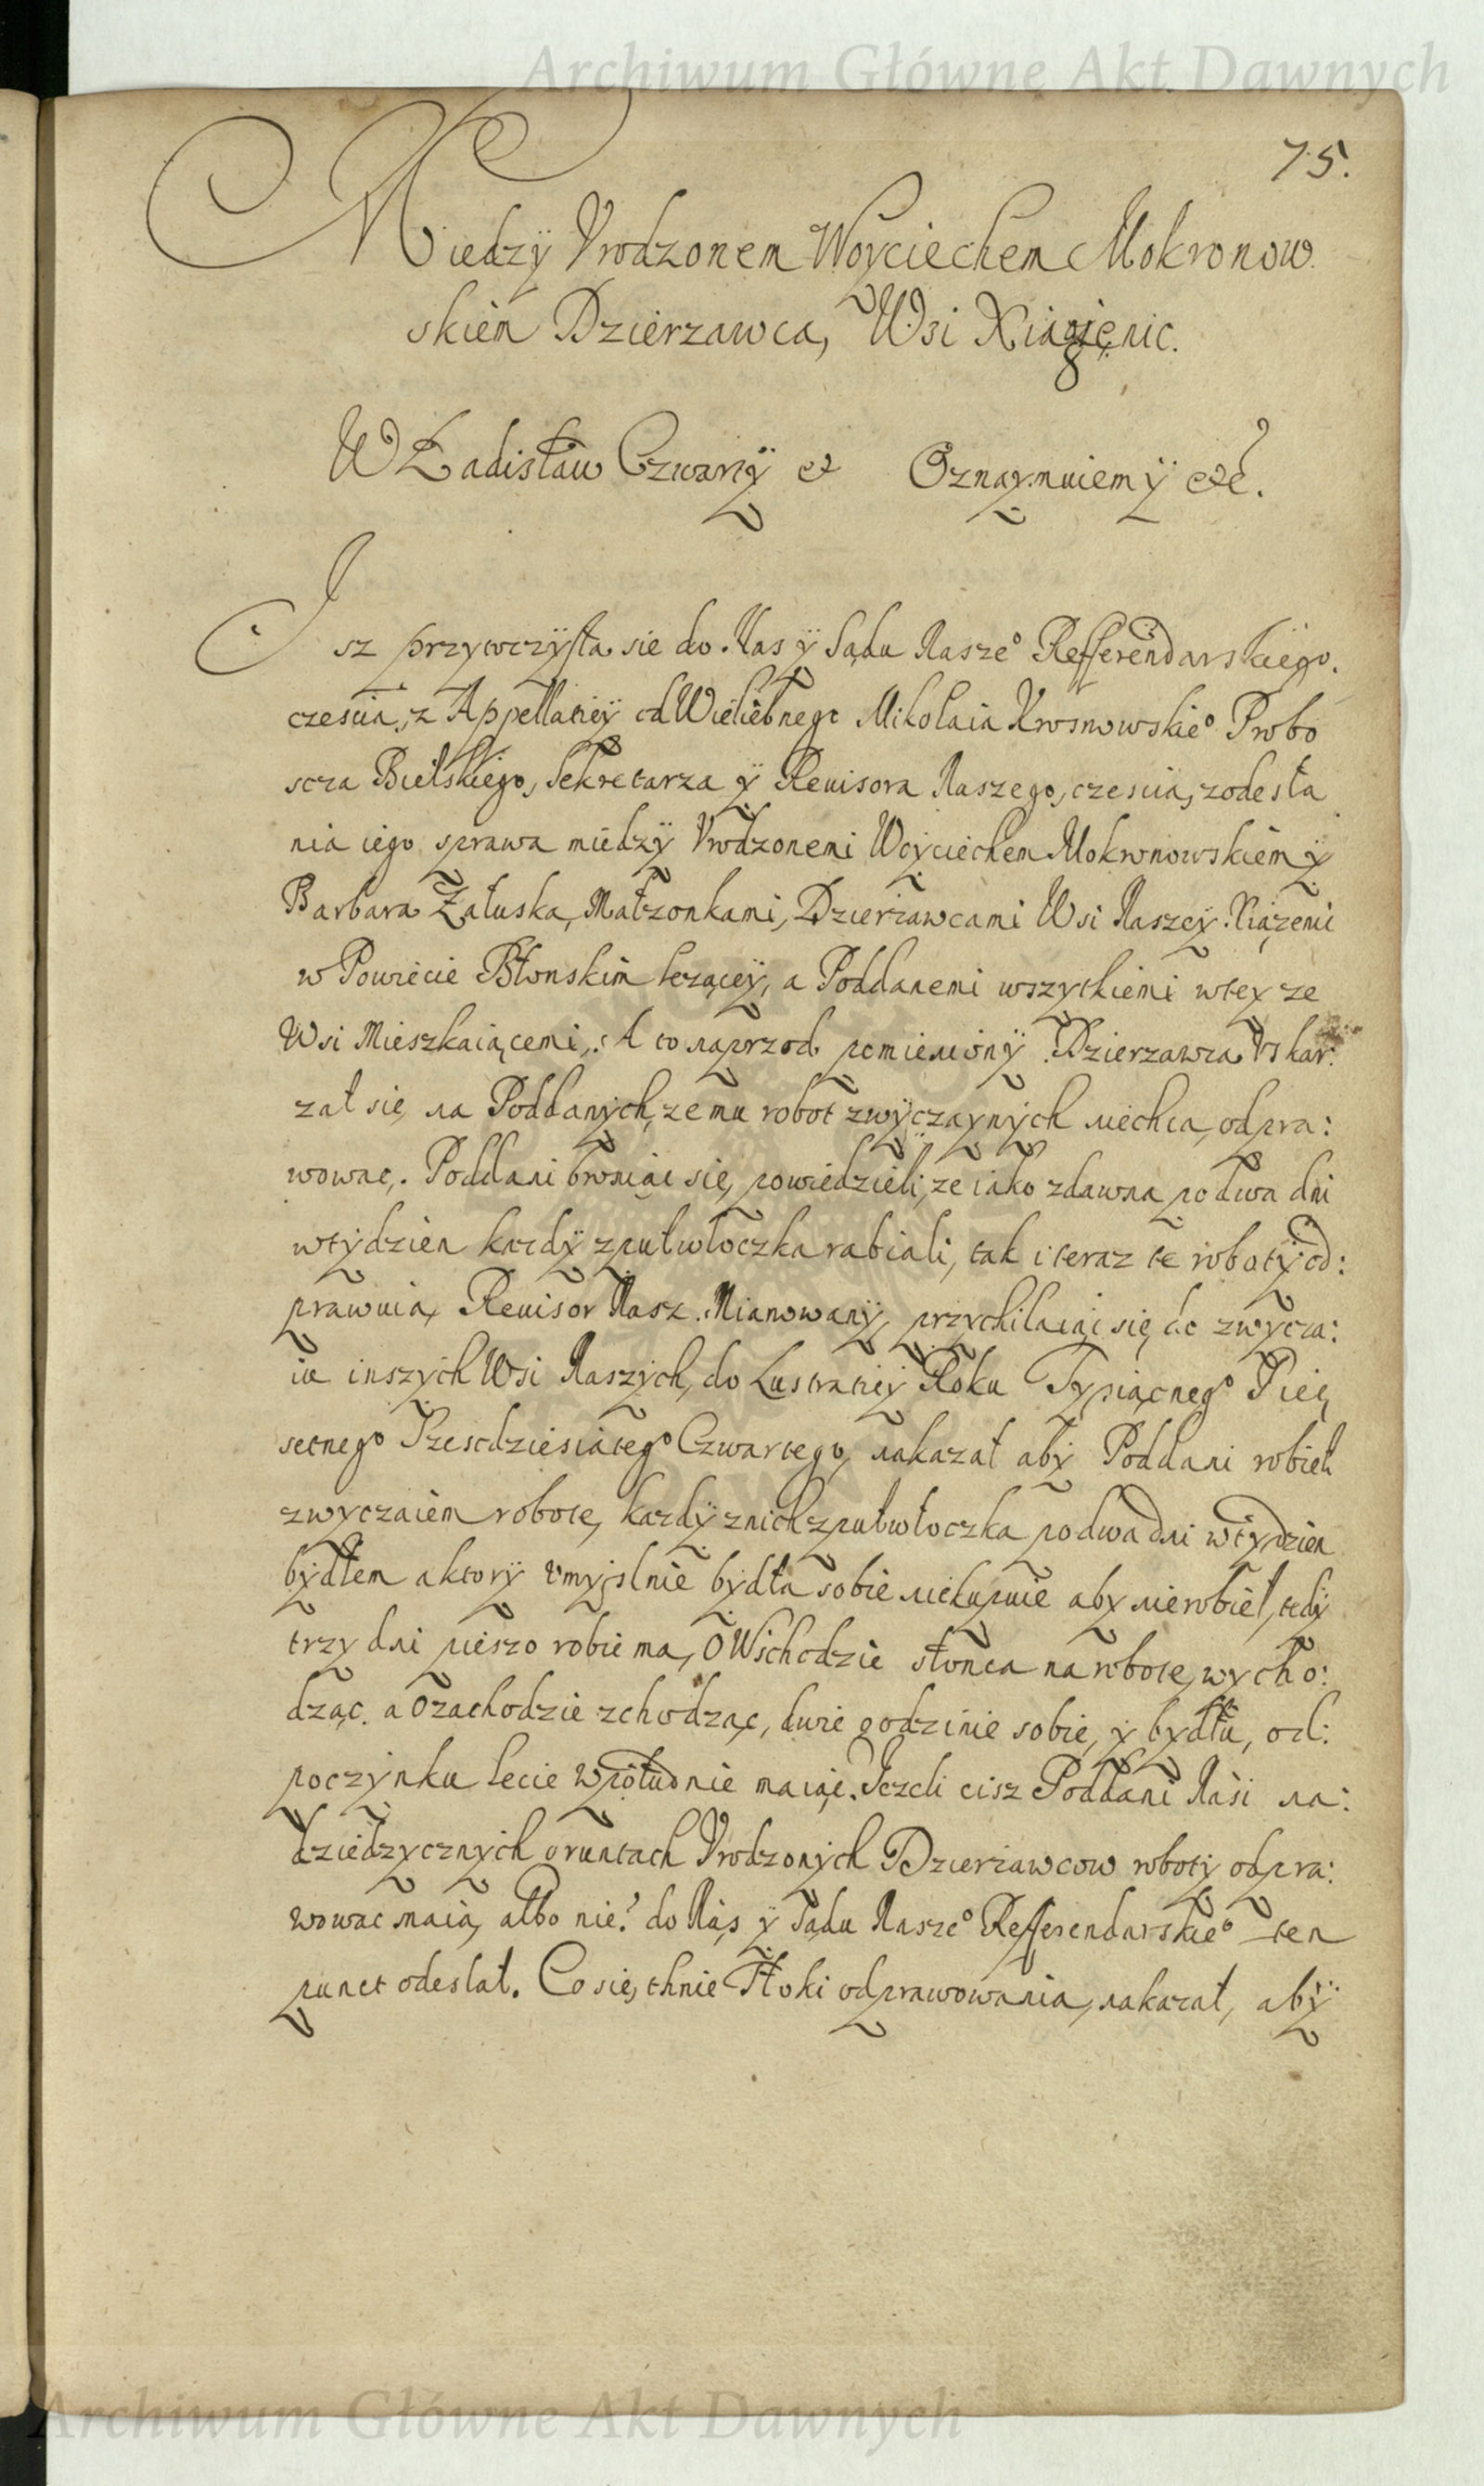 Archiwum Główne Akt Dawnych
75.
Miedzÿ Vrodzonem Woyciechem Mokronow
skiem Dzierzawca, Wsi Xiązęnic.
WŁadisław Czwartÿ et Oznaymuiemÿ etc.
Isz przytoczÿła sie do Nas ÿ Sądu Nasze° Refferendarskiego.
czescia, z Appellatieÿ od Wielebnego Mikołaia Krosnowskie° Probo
scza Bielskiego, Sekretarza ÿ Reuisora Naszego, czescia, zodesła
nia iego sprawa miedzÿ Vrodzonemi Woyciechem Mokronowskiem ÿ
Barbara Załuska, Małzonkami, Dzierzawcami Wsi Naszeÿ Xiązenic
w Powiecie Błonskim lezącey, a Poddanemi wszytkiemi wtey ze
Wsi Mieszkaiącemi, A to naprzod pomienionÿ Dzierzawca Vskar:
zał się, na Poddanych, ze mu robot zwÿczaynÿch niechca, odpra:
wowac,. Poddani broniąc się, powiedzieli, ze iako zdawna po dwa dni
wtÿdzien kazdÿ zpułwłoczka rabiali, tak i teraz te robotÿ od:
prawuia, Reuisor Nasz Mianowanÿ, przychilaiąc się, do zwycza:
iu inszÿch Wsi Naszÿch, do Lustratieÿ Roku Tysiącneg° Pięc
setneg° Szescdziesiąteg° Czwartego, nakazał abÿ Poddani robieli
zwyczaiem robote, kazdÿ znich zpułwłoczka po dwa dni wtÿdzien
bÿdłem a ktorÿ vmyslnie bÿdła sobie niekupuie aby nierobieł, tedÿ
trzy dni pieszo robic ma, O Wschodzie słonca na robote, wycho:
dząc. a Ozachodzie zchodząc, dwie godzinie sobie, ÿ bydłu, od:
poczÿnku lecie wpołudnie maiąc. Iezeli tisz Poddani Nasi na:
dziedzycznÿch gruntach Vrodzonÿch Dzierzawcow robotÿ odpra:
wowac maią, albo nie? do Nas ÿ Sądu Nasze° Refferendarskie° ten
punct odesłał. Co się, tknie Tłoki odprawowania, nakazał, abÿ
Archiwum Główne Akt Dawnych